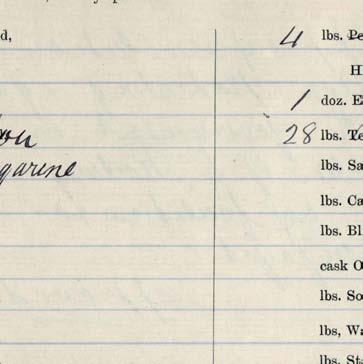 d,
4 lbs. Pe
H
1 doz. E
28 lbs. Te
garine
lbs. Sa
lbs. Ca
lbs. Bl
cask O
lbs. So
lbs, Wa
lbs. St